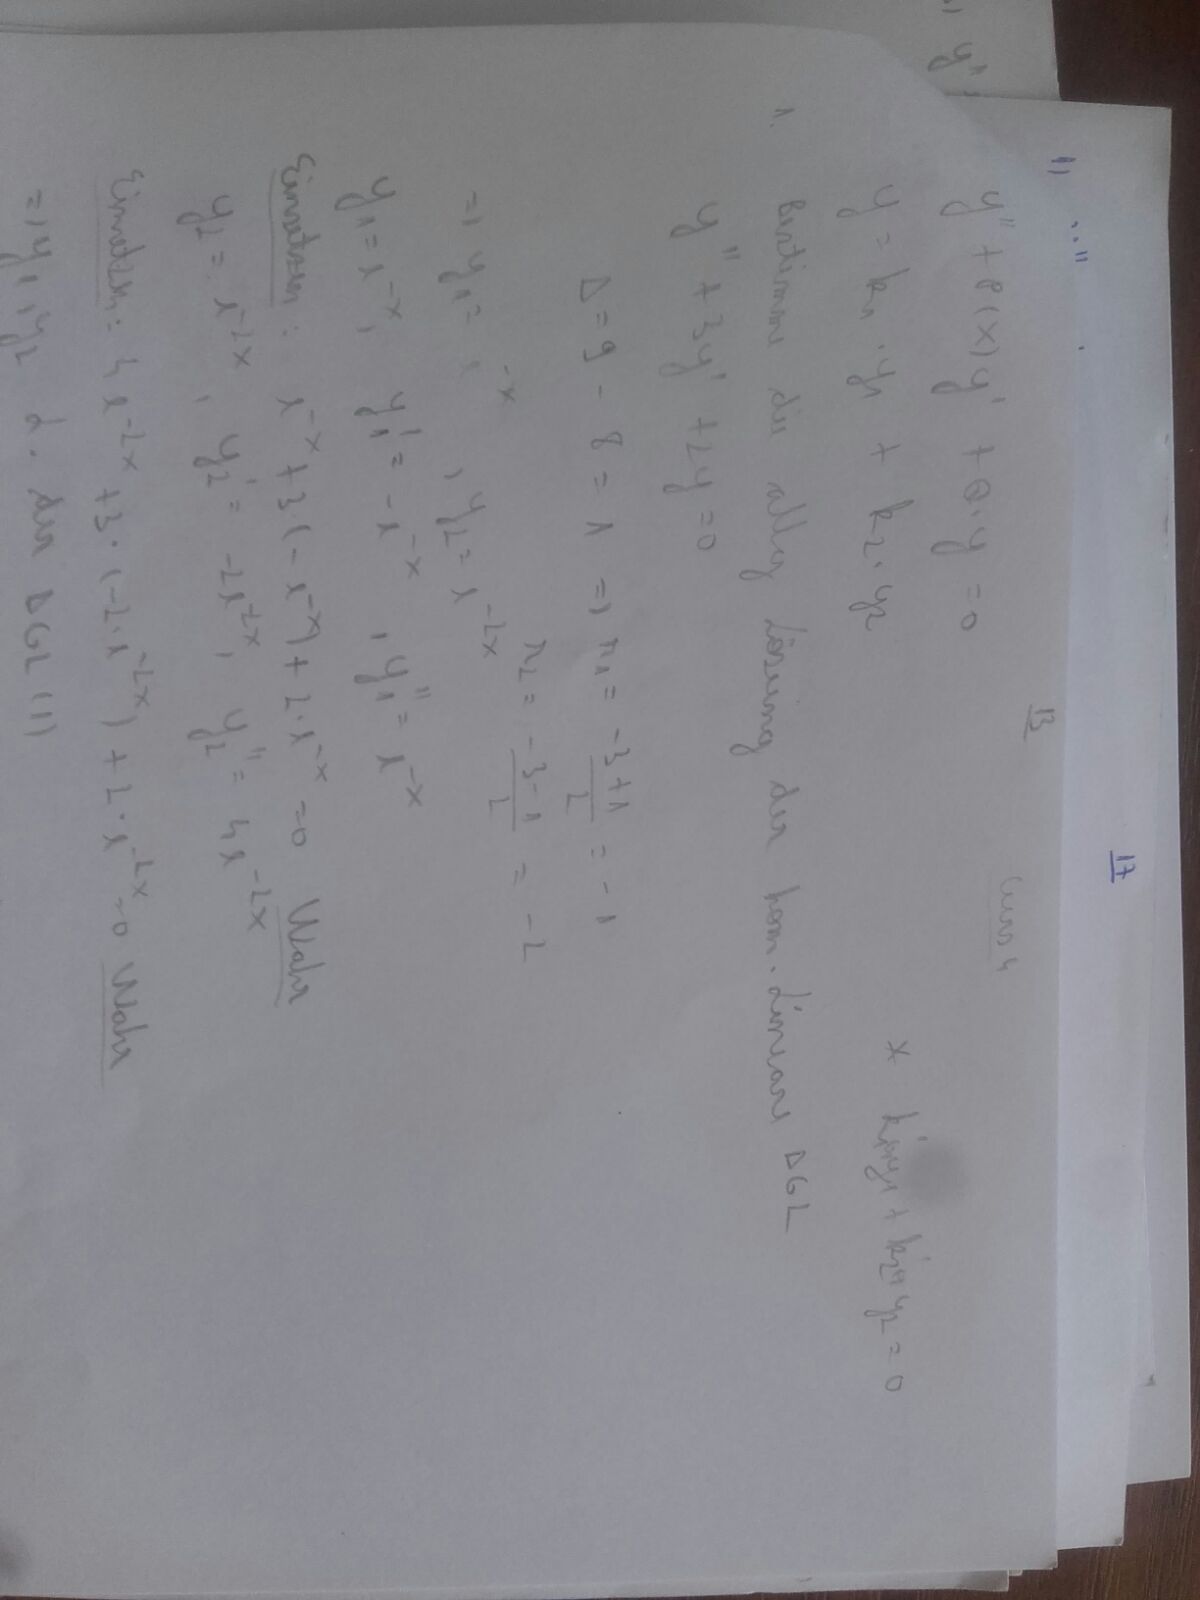 17
1)
13
Curs 4
y'' + P(x)y' + Q·y = 0
y = k1·y1 + k2·y2
* k1·y1 + k2·y2 = 0
1. Bestimme die allg Lösung der hom. Lineare DGL
y'' + 3y' + 2y = 0
Δ = 9 - 8 = 1 => r1 = (-3+1)/2 = -1
r2 = (-3-1)/2 = -2
=> y1 = e^-x , y2 = e^-2x
y1 = e^-x, y1' = -e^-x , y1'' = e^-x
Einsetzen: e^-x + 3·(-e^-x) + 2·e^-x = 0 Wahr
y2 = e^-2x , y2' = -2e^-2x, y2'' = 4e^-2x
Einsetzen: 4e^-2x + 3·(-2·e^-2x) + 2·e^-2x = 0 Wahr
=> y1, y2 L. der DGL (1)